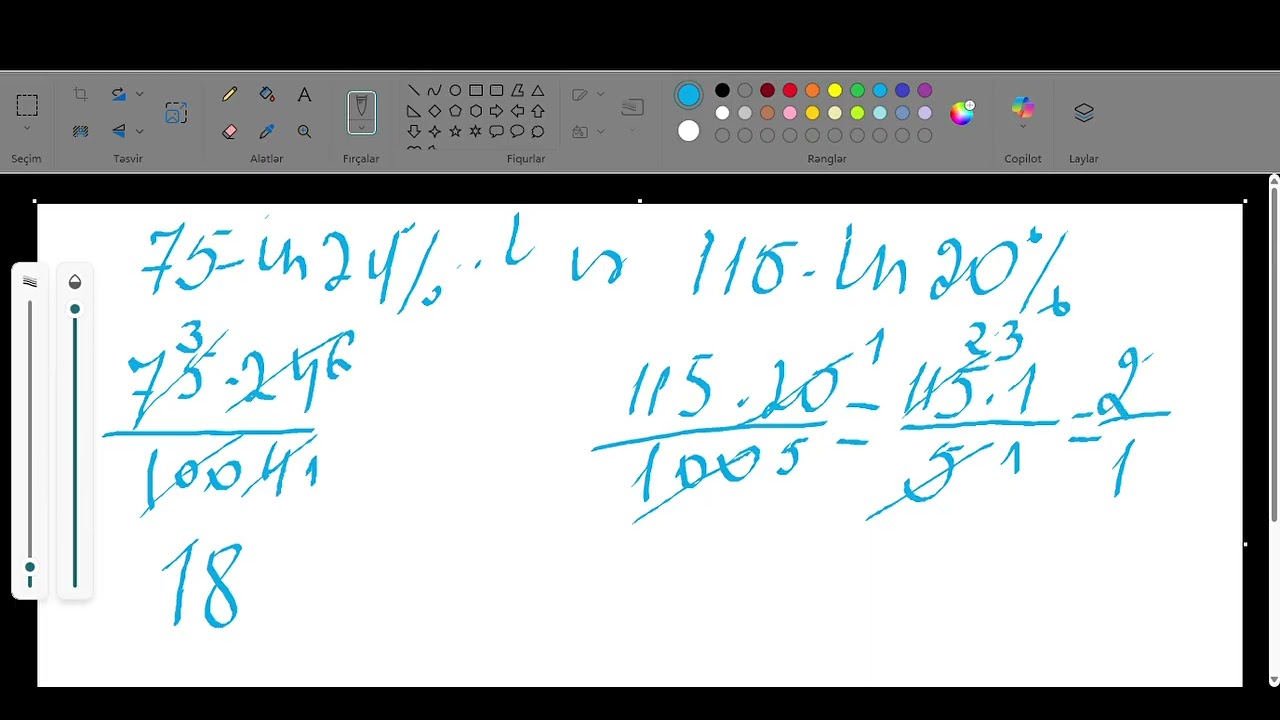 Seçim
Təsvir
Alətlər
Fırçalar
Fiqurlar
Rənglər
Copilot
Laylar
75-in 24% 115-in 20%
75 3 · 24 6
100 4 1
18
115 · 20 1
100 5
=
115 · 1 23
5 1
=
2
1